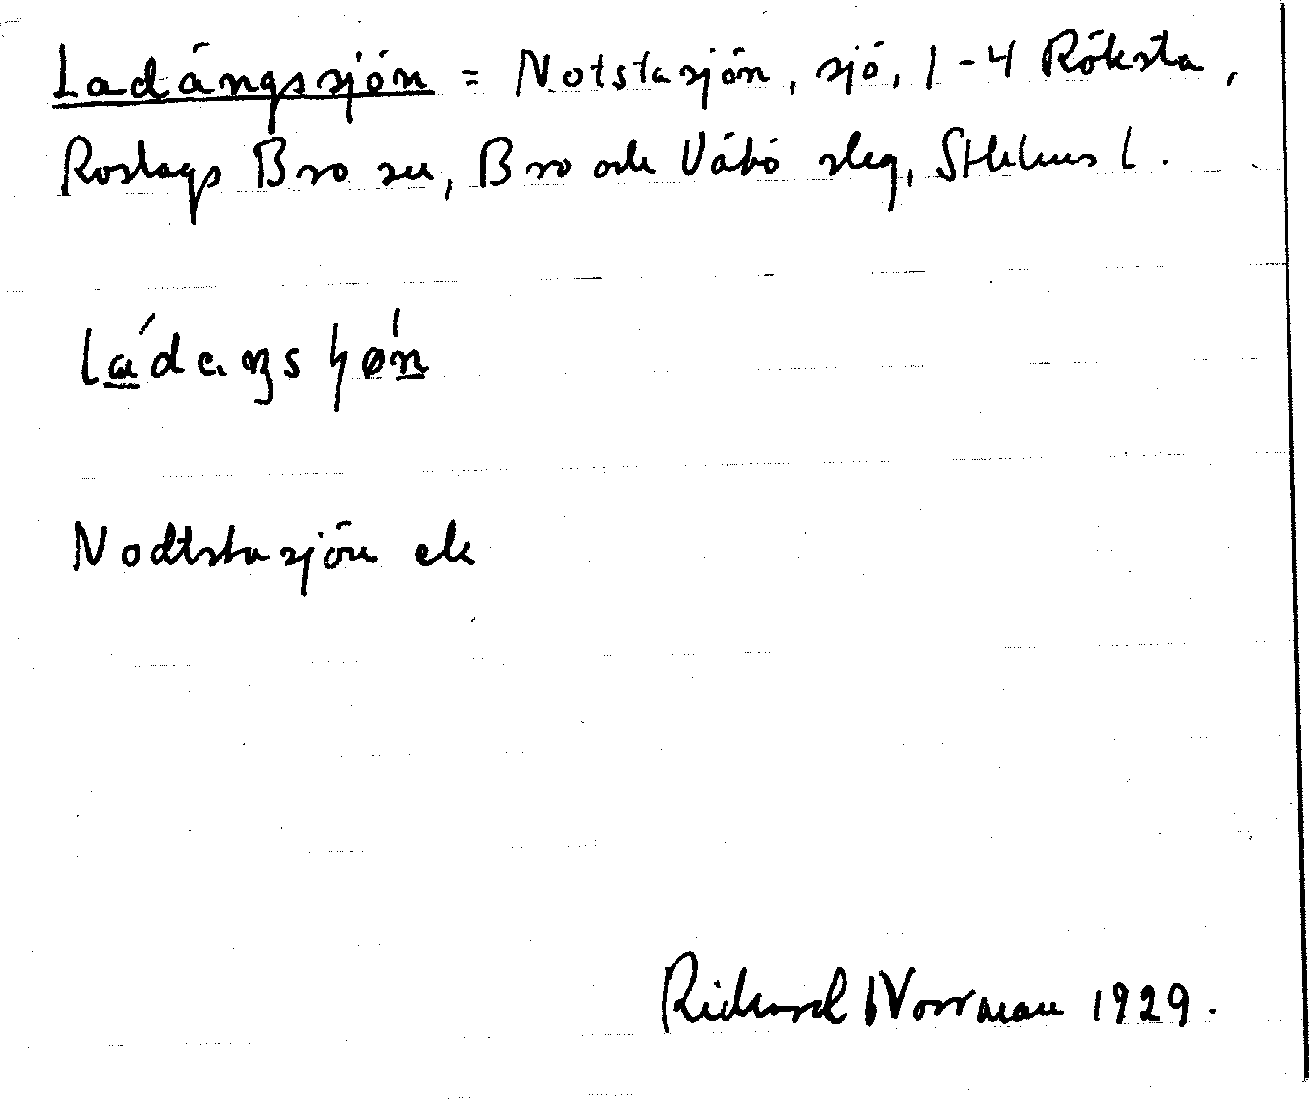 Ladängssjön = Notstasjön, sjö, 1-4 Röksta,
Roslags Bro sn, Bro och Vätö slag, Sthlms l.
Nodtstasjön ek
Rickard Norrman 1929.